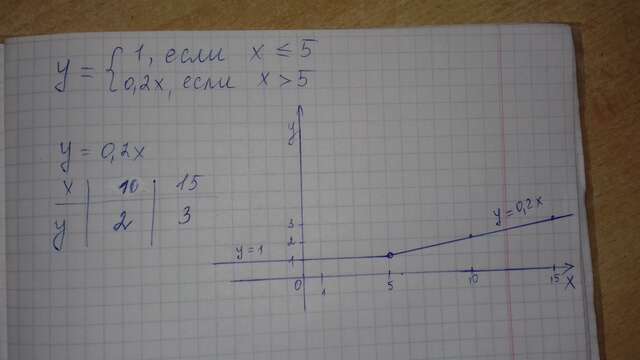 y = { 1, если x ≤ 5
0,2x, если x > 5
y = 0,2x
x 10 15
y 2 3
y
3
2
1
y = 1
y = 0,2x
0 1 5 10 15 x